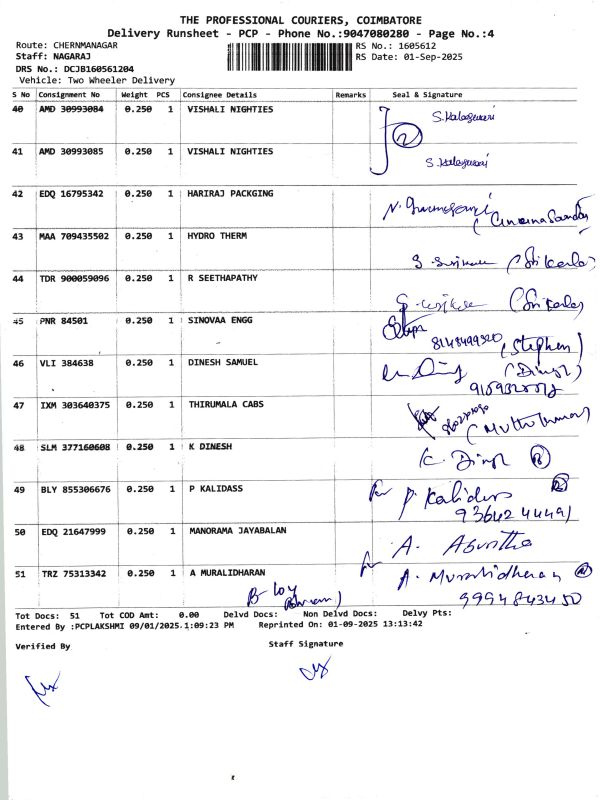 THE PROFESSIONAL COURIERS, COIMBATORE
Delivery Runsheet - PCP - Phone No.:9047080280 - Page No.:4
Route: CHERNMANAGAR RS No.: 1605612
Staff: NAGARAJ RS Date: 01-Sep-2025
DRS No.: DCJB160561204
Vehicle: Two Wheeler Delivery
S No Consignment No Weight PCS Consignee Details Remarks Seal & Signature
40 AMD 30993084 0.250 1 VISHALI NIGHTIES
2
41 AMD 30993085 0.250 1 VISHALI NIGHTIES
42 EDQ 16795342 0.250 1 HARIRAJ PACKGING
43 MAA 709435502 0.250 1 HYDRO THERM
44 TDR 900059096 0.250 1 R SEETHAPATHY
45 PNR 84501 0.250 1 SINOVAA ENGG
(Stephen)
46 VLI 384638 0.250 1 DINESH SAMUEL
47 IXM 303640375 0.250 1 THIRUMALA CABS
48 SLM 377160608 0.250 1 K DINESH
49 BLY 855306676 0.250 1 P KALIDASS
for P. Kalidass
9364244491
50 EDQ 21647999 0.250 1 MANORAMA JAYABALAN
51 TRZ 75313342 0.250 1 A MURALIDHARAN A. Muralidharan
9994843450
Tot Docs: 51 Tot COD Amt: 0.00 Delvd Docs: Non Delvd Docs: Delvy Pts:
Entered By :PCPLAKSHMI 09/01/2025.1:09:23 PM Reprinted On: 01-09-2025 13:13:42
Verified By Staff Signature